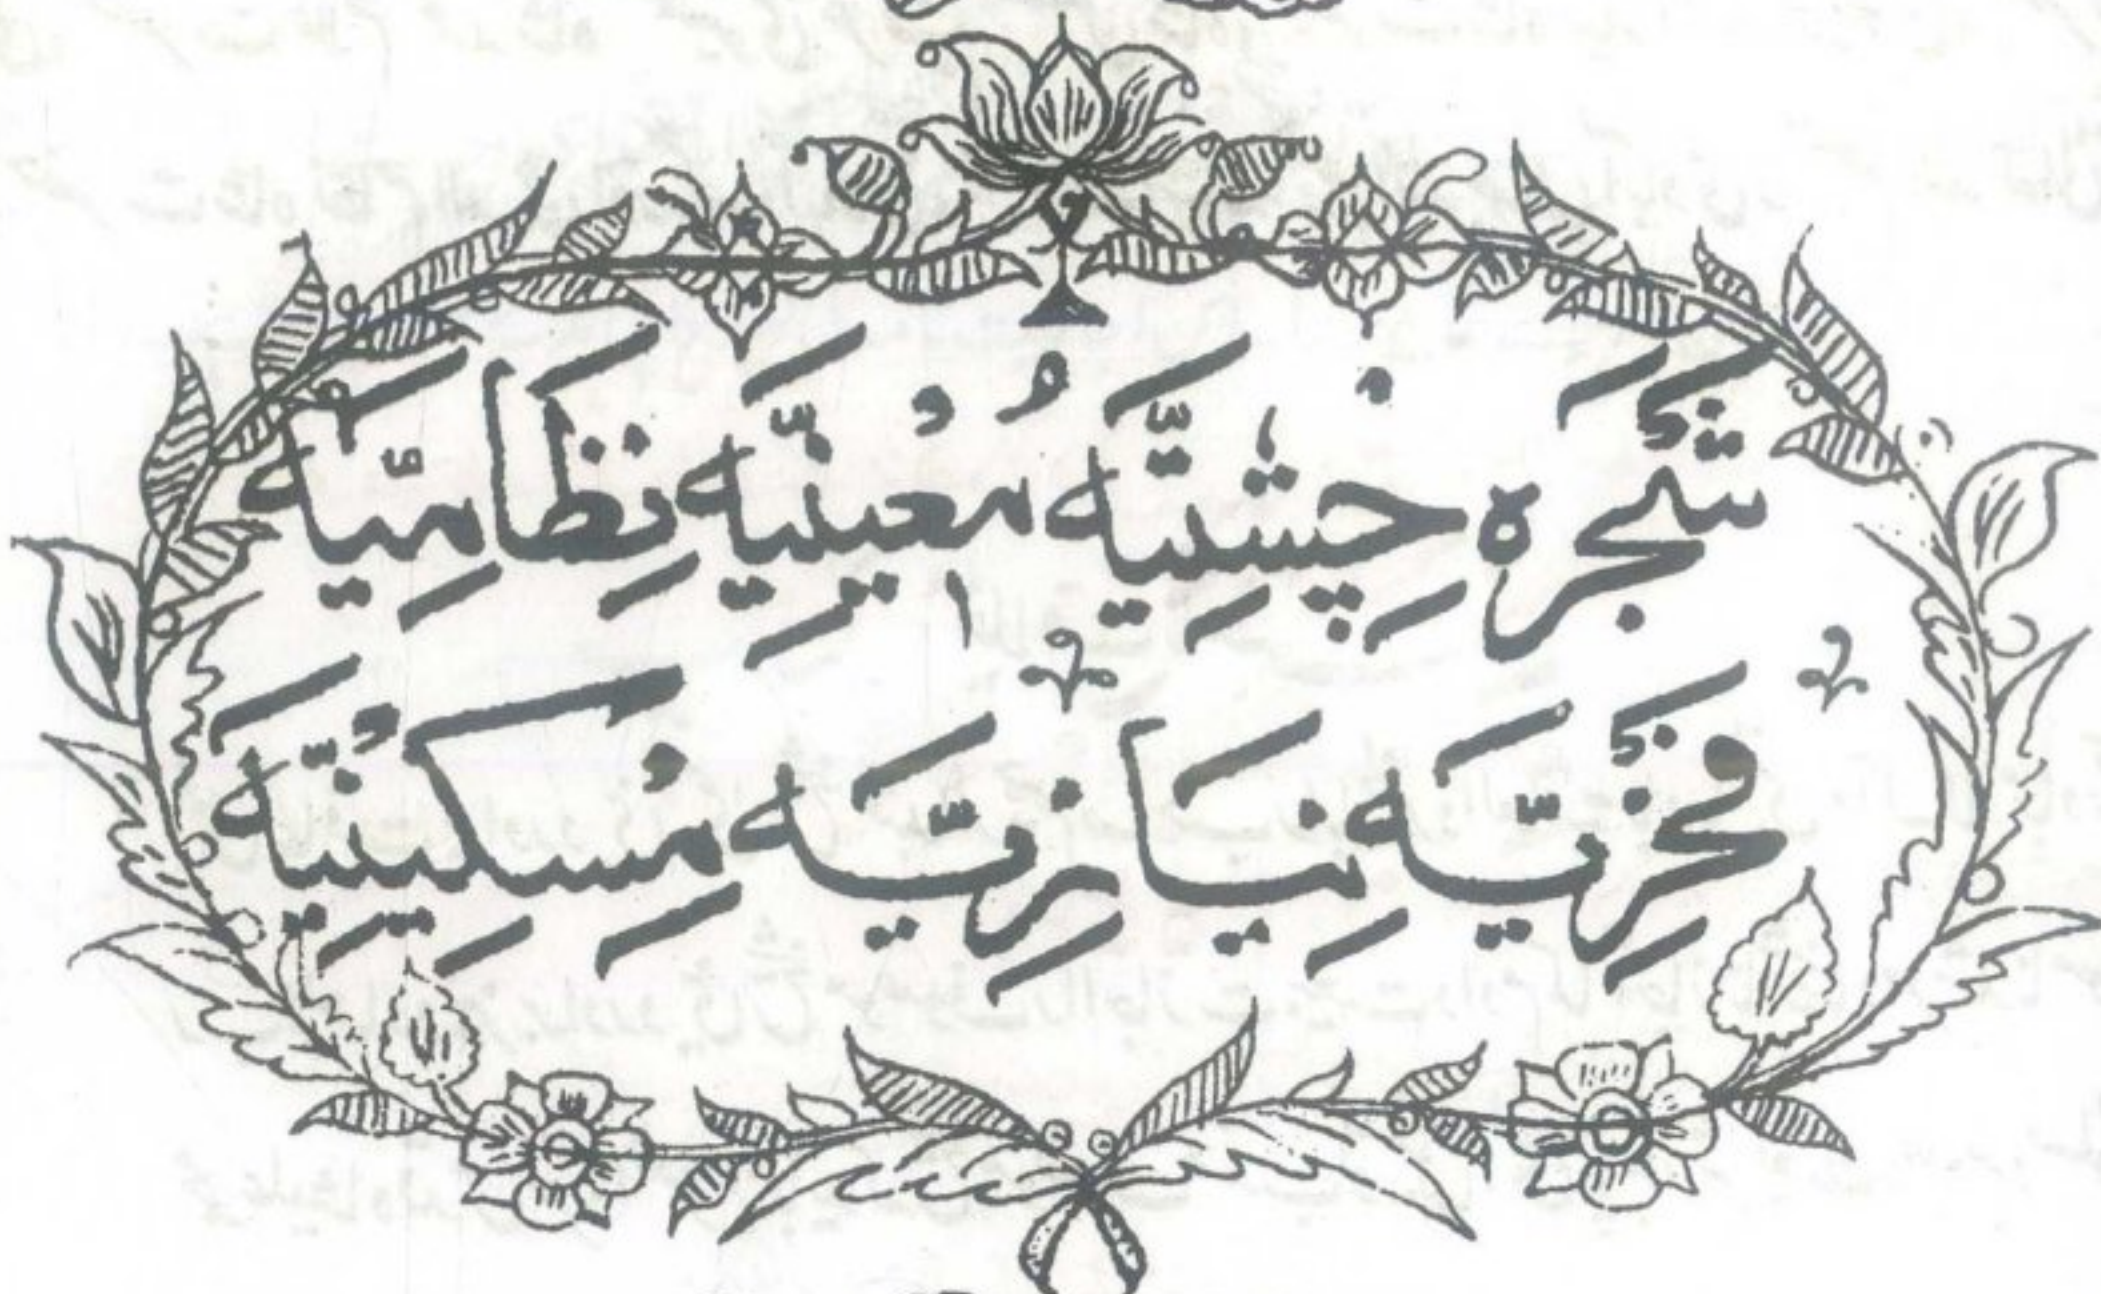 شَجَرَہ چِشْتِیَّہ مُعِیْنِیَّہ نِظَامِیَّہ
فَخْرِیَّہ نِیَازِیَّہ مِسْکِیْنِیَّہ